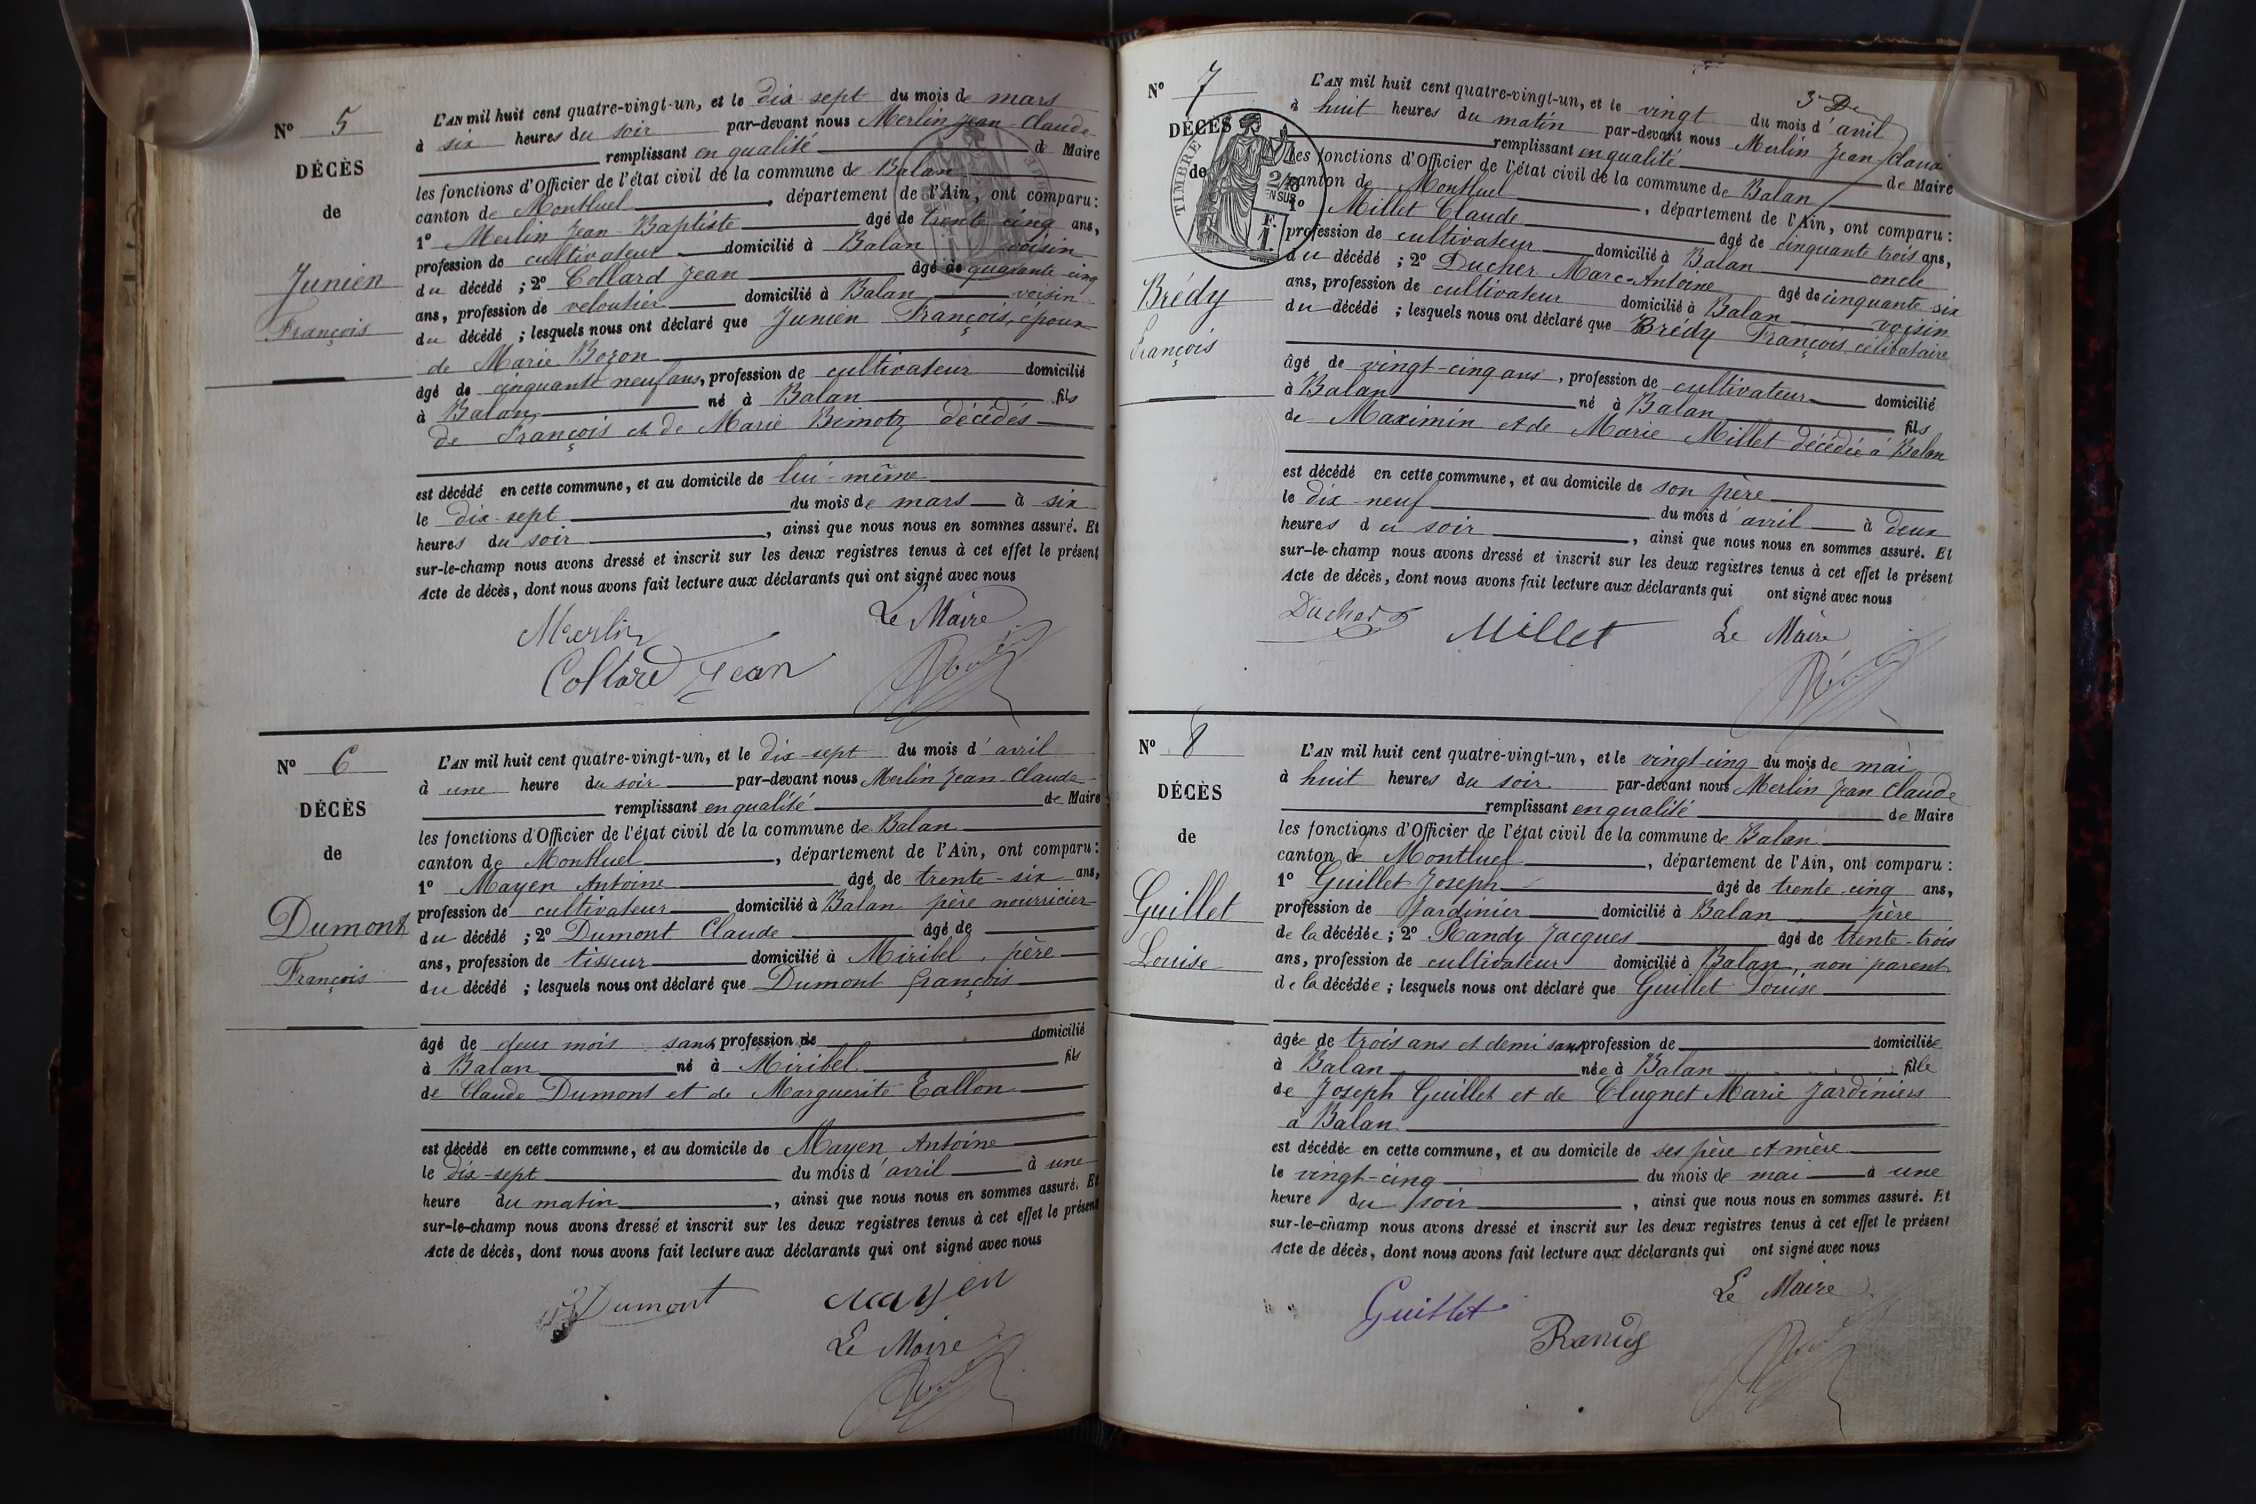 N° 5
DÉCÈS
de
Junien
François
L'AN mil huit cent quatre-vingt-un, et le dix sept du mois de mars
à six heures du soir par-devant nous Merlin Jean Claude
remplissant en qualité de Maire
les fonctions d'Officier de l'état civil de la commune de Balan
canton de Montluel, département de l'Ain, ont comparu :
1° Merlin Jean Baptiste âgé de trente cinq ans,
profession de cultivateur domicilié à Balan voisin
du décédé ; 2° Collard Jean âgé de quarante cinq
ans, profession de veloutier domicilié à Balan voisin
du décédé ; lesquels nous ont déclaré que Junien François, époux
de Marie Bozon
âgé de cinquante neuf ans, profession de cultivateur domicilié
à Balan né à Balan fils
de François et de Marie Bimotz décédés
est décédé en cette commune, et au domicile de lui-même
le dix-sept du mois de mars à six
heures du soir, ainsi que nous nous en sommes assuré. Et
sur-le-champ nous avons dressé et inscrit sur les deux registres tenus à cet effet le présent
Acte de décès, dont nous avons fait lecture aux déclarants qui ont signé avec nous
Merlin
Le Maire
Collard Jean
N° 6
DÉCÈS
de
Dumont
François
L'AN mil huit cent quatre-vingt-un, et le dix-sept du mois d'avril
à une heure du soir par-devant nous Merlin Jean-Claude
remplissant en qualité de Maire
les fonctions d'Officier de l'état civil de la commune de Balan
canton de Montluel, département de l'Ain, ont comparu :
1° Mayen Antoine âgé de trente-six ans,
profession de cultivateur domicilié à Balan père nourricier
du décédé ; 2° Dumont Claude âgé de
ans, profession de tisseur domicilié à Miribel, père
du décédé ; lesquels nous ont déclaré que Dumont françois
âgé de deux mois sans profession de domicilié
à Balan né à Miribel fils
de Claude Dumont et de Marguerite Tallon
est décédé en cette commune, et au domicile de Mayen Antoine
le dix-sept du mois d'avril à une
heure du matin, ainsi que nous nous en sommes assuré. Et
sur-le-champ nous avons dressé et inscrit sur les deux registres tenus à cet effet le présent
Acte de décès, dont nous avons fait lecture aux déclarants qui ont signé avec nous
Dumont
Mayen
Le Maire
N° 7
DÉCÈS
de
TIMBRE
Brédy
François
L'AN mil huit cent quatre-vingt-un, et le vingt du mois d'avril
à huit heures du matin par-devant nous Merlin Jean Claude
remplissant en qualité de Maire
les fonctions d'Officier de l'état civil de la commune de Balan
canton de Montluel, département de l'Ain, ont comparu :
1° Millet Claude âgé de cinquante trois ans,
profession de cultivateur domicilié à Balan oncle
du décédé ; 2° Ducher Marc-Antoine âgé de cinquante six
ans, profession de cultivateur domicilié à Balan voisin
du décédé ; lesquels nous ont déclaré que Brédy François, célibataire
âgé de vingt-cinq ans, profession de cultivateur domicilié
à Balan né à Balan fils
de Maximin et de Marie Millet décédée à Balan
est décédé en cette commune, et au domicile de son père
le dix-neuf du mois d'avril à deux
heures du soir, ainsi que nous nous en sommes assuré. Et
sur-le-champ nous avons dressé et inscrit sur les deux registres tenus à cet effet le présent
Acte de décès, dont nous avons fait lecture aux déclarants qui ont signé avec nous
Ducher
Millet
Le Maire
N° 8
DÉCÈS
de
Guillet
Louise
L'AN mil huit cent quatre-vingt-un, et le vingt-cinq du mois de mai
à huit heures du soir par-devant nous Merlin Jean Claude
remplissant en qualité de Maire
les fonctions d'Officier de l'état civil de la commune de Balan
canton de Montluel, département de l'Ain, ont comparu :
1° Guillet Joseph âgé de trente cinq ans,
profession de Jardinier domicilié à Balan père
de la décédée ; 2° Randy Jacques âgé de trente-trois
ans, profession de cultivateur domicilié à Balan, non parent
de la décédée ; lesquels nous ont déclaré que Guillet Louise
âgée de trois ans et demi sans profession de domiciliée
à Balan née à Balan fille
de Joseph Guillet et de Clugnet Marie Jardiniers
à Balan
est décédée en cette commune, et au domicile de ses père et mère
le vingt-cinq du mois de mai à une
heure du soir, ainsi que nous nous en sommes assuré. Et
sur-le-champ nous avons dressé et inscrit sur les deux registres tenus à cet effet le présent
Acte de décès, dont nous avons fait lecture aux déclarants qui ont signé avec nous
Guillet
Le Maire
Randy